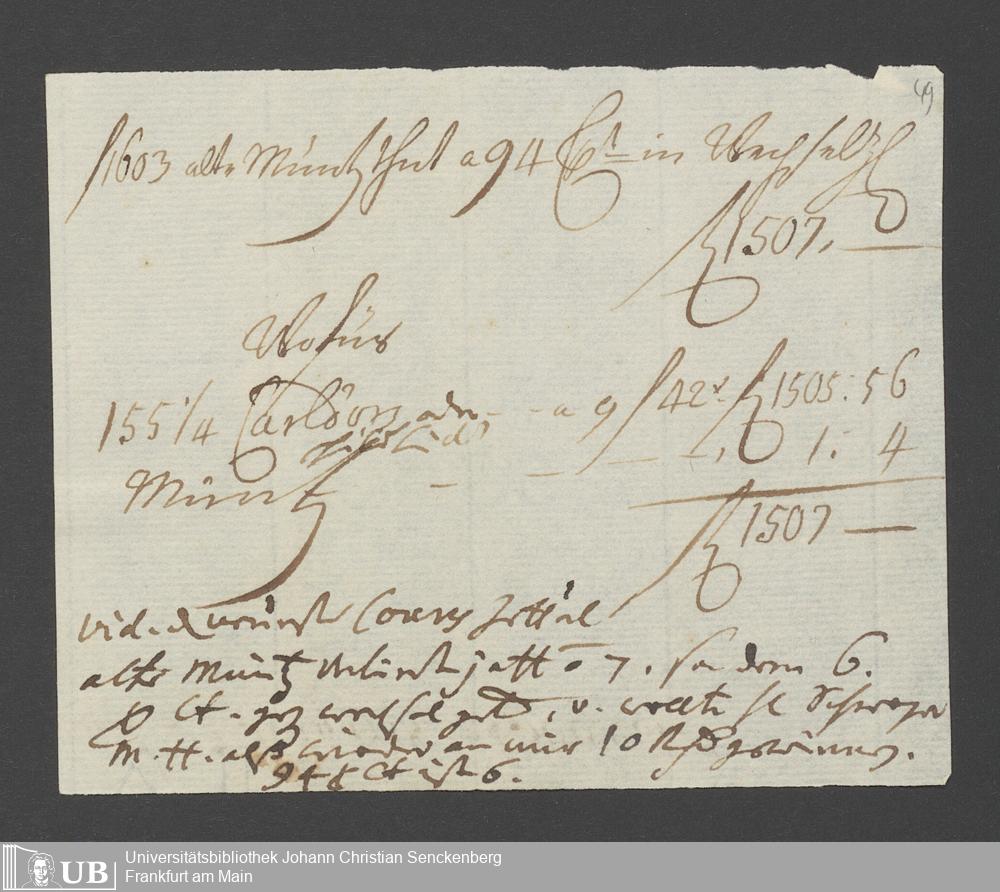 49
f 1603 alte Müntz thut a 94 Ct in Wechsel
f 1507. —
Wofür
155 1/4 Carldors oder a 9 f 42 x f 1505: 56
Müntz — — — 1: 4
f 1507 —
vid. Cours Zettel
alte Müntz verliert jatt o 7. 6.
Ct. geg wechsel gelt, v. wollte H Schwager
M. H. also wieder an mir 10 gewinnen.
94 Ct ist 6.
UB
Universitätsbibliothek Johann Christian Senckenberg
Frankfurt am Main